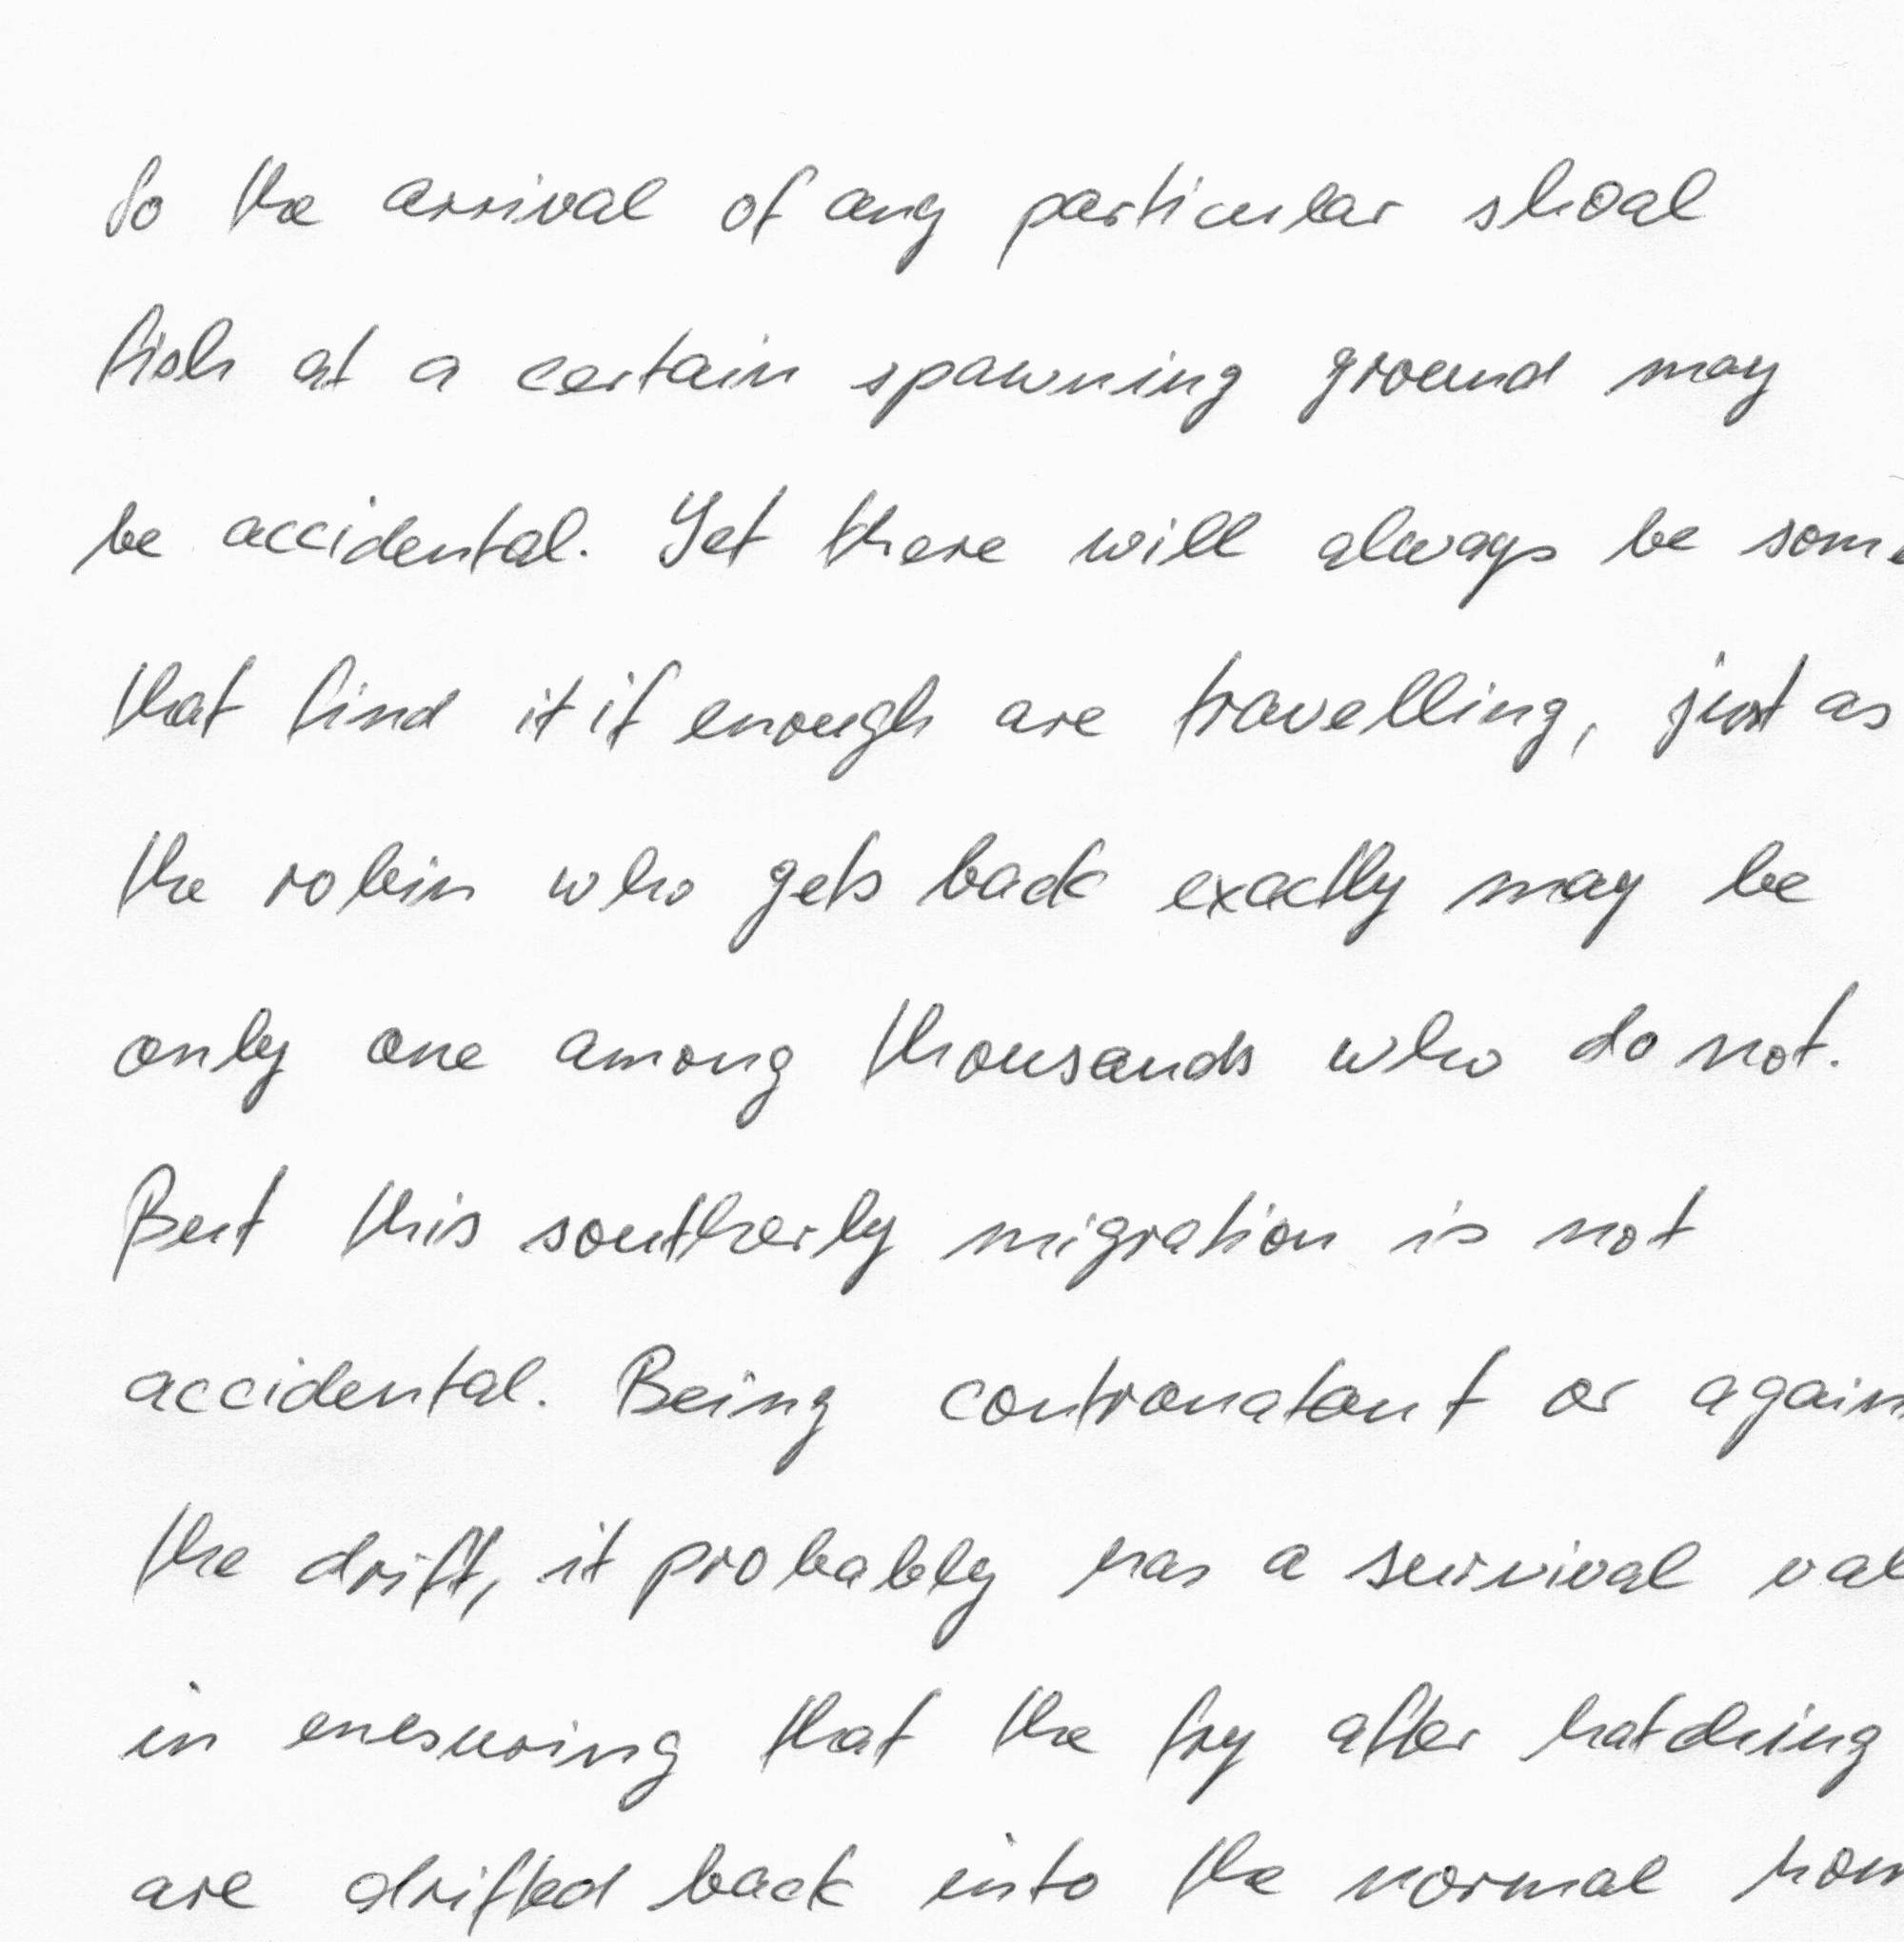 So the arrival of any particular shoal
fish at a certain spawning ground may
be accidental. Yet there will always be some
that find it if enough are travelling, just as
the robin who gets back exactly may be
only one among thousands who do not.
But this southerly migration is not
accidental. Being contranatant or again
the drift, it probably has a survival val
in ensuring that the fry after hatching
are drifted back into the normal hom